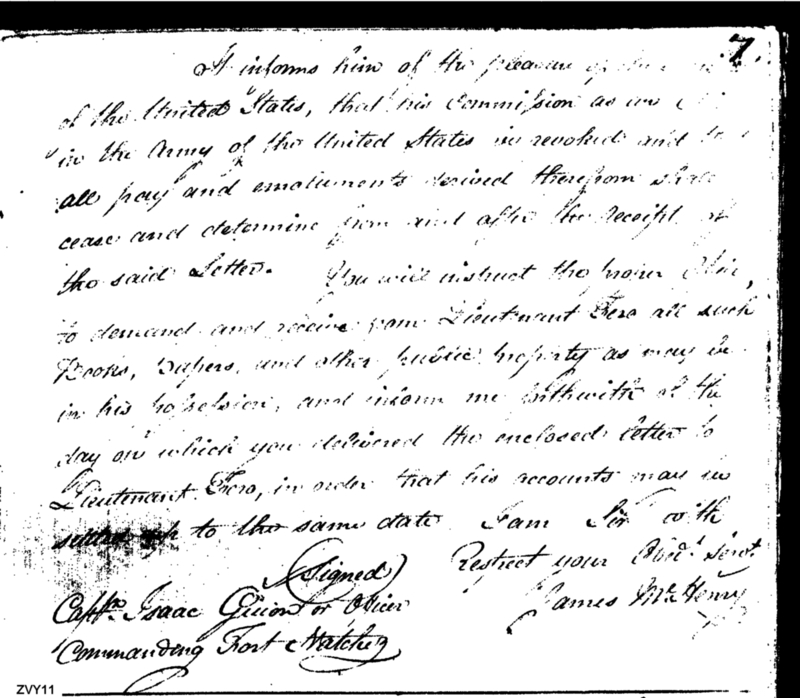 7.
It informs him of the pleasure of the
of the United States, that his Commission as an
in the Army of the United States is revoked and
all pay and emoluments derived therefrom shall
cease and determine from and after the receipt of
the said Letter. You will instruct the proper
to demand and receive from Lieutenant Fero all such
Books, Papers, and other public property as may be
in his possession, and inform me forthwith of the
day on which you delivered the enclosed letter to
Lieutenant Fero, in order that his accounts may be
settled up to the same date I am Sir with
(Signed) Respect your Obedt. Servt.
Captn. Isaac Guion or Officer James McHenry
Commanding Fort Natchez
ZVY11